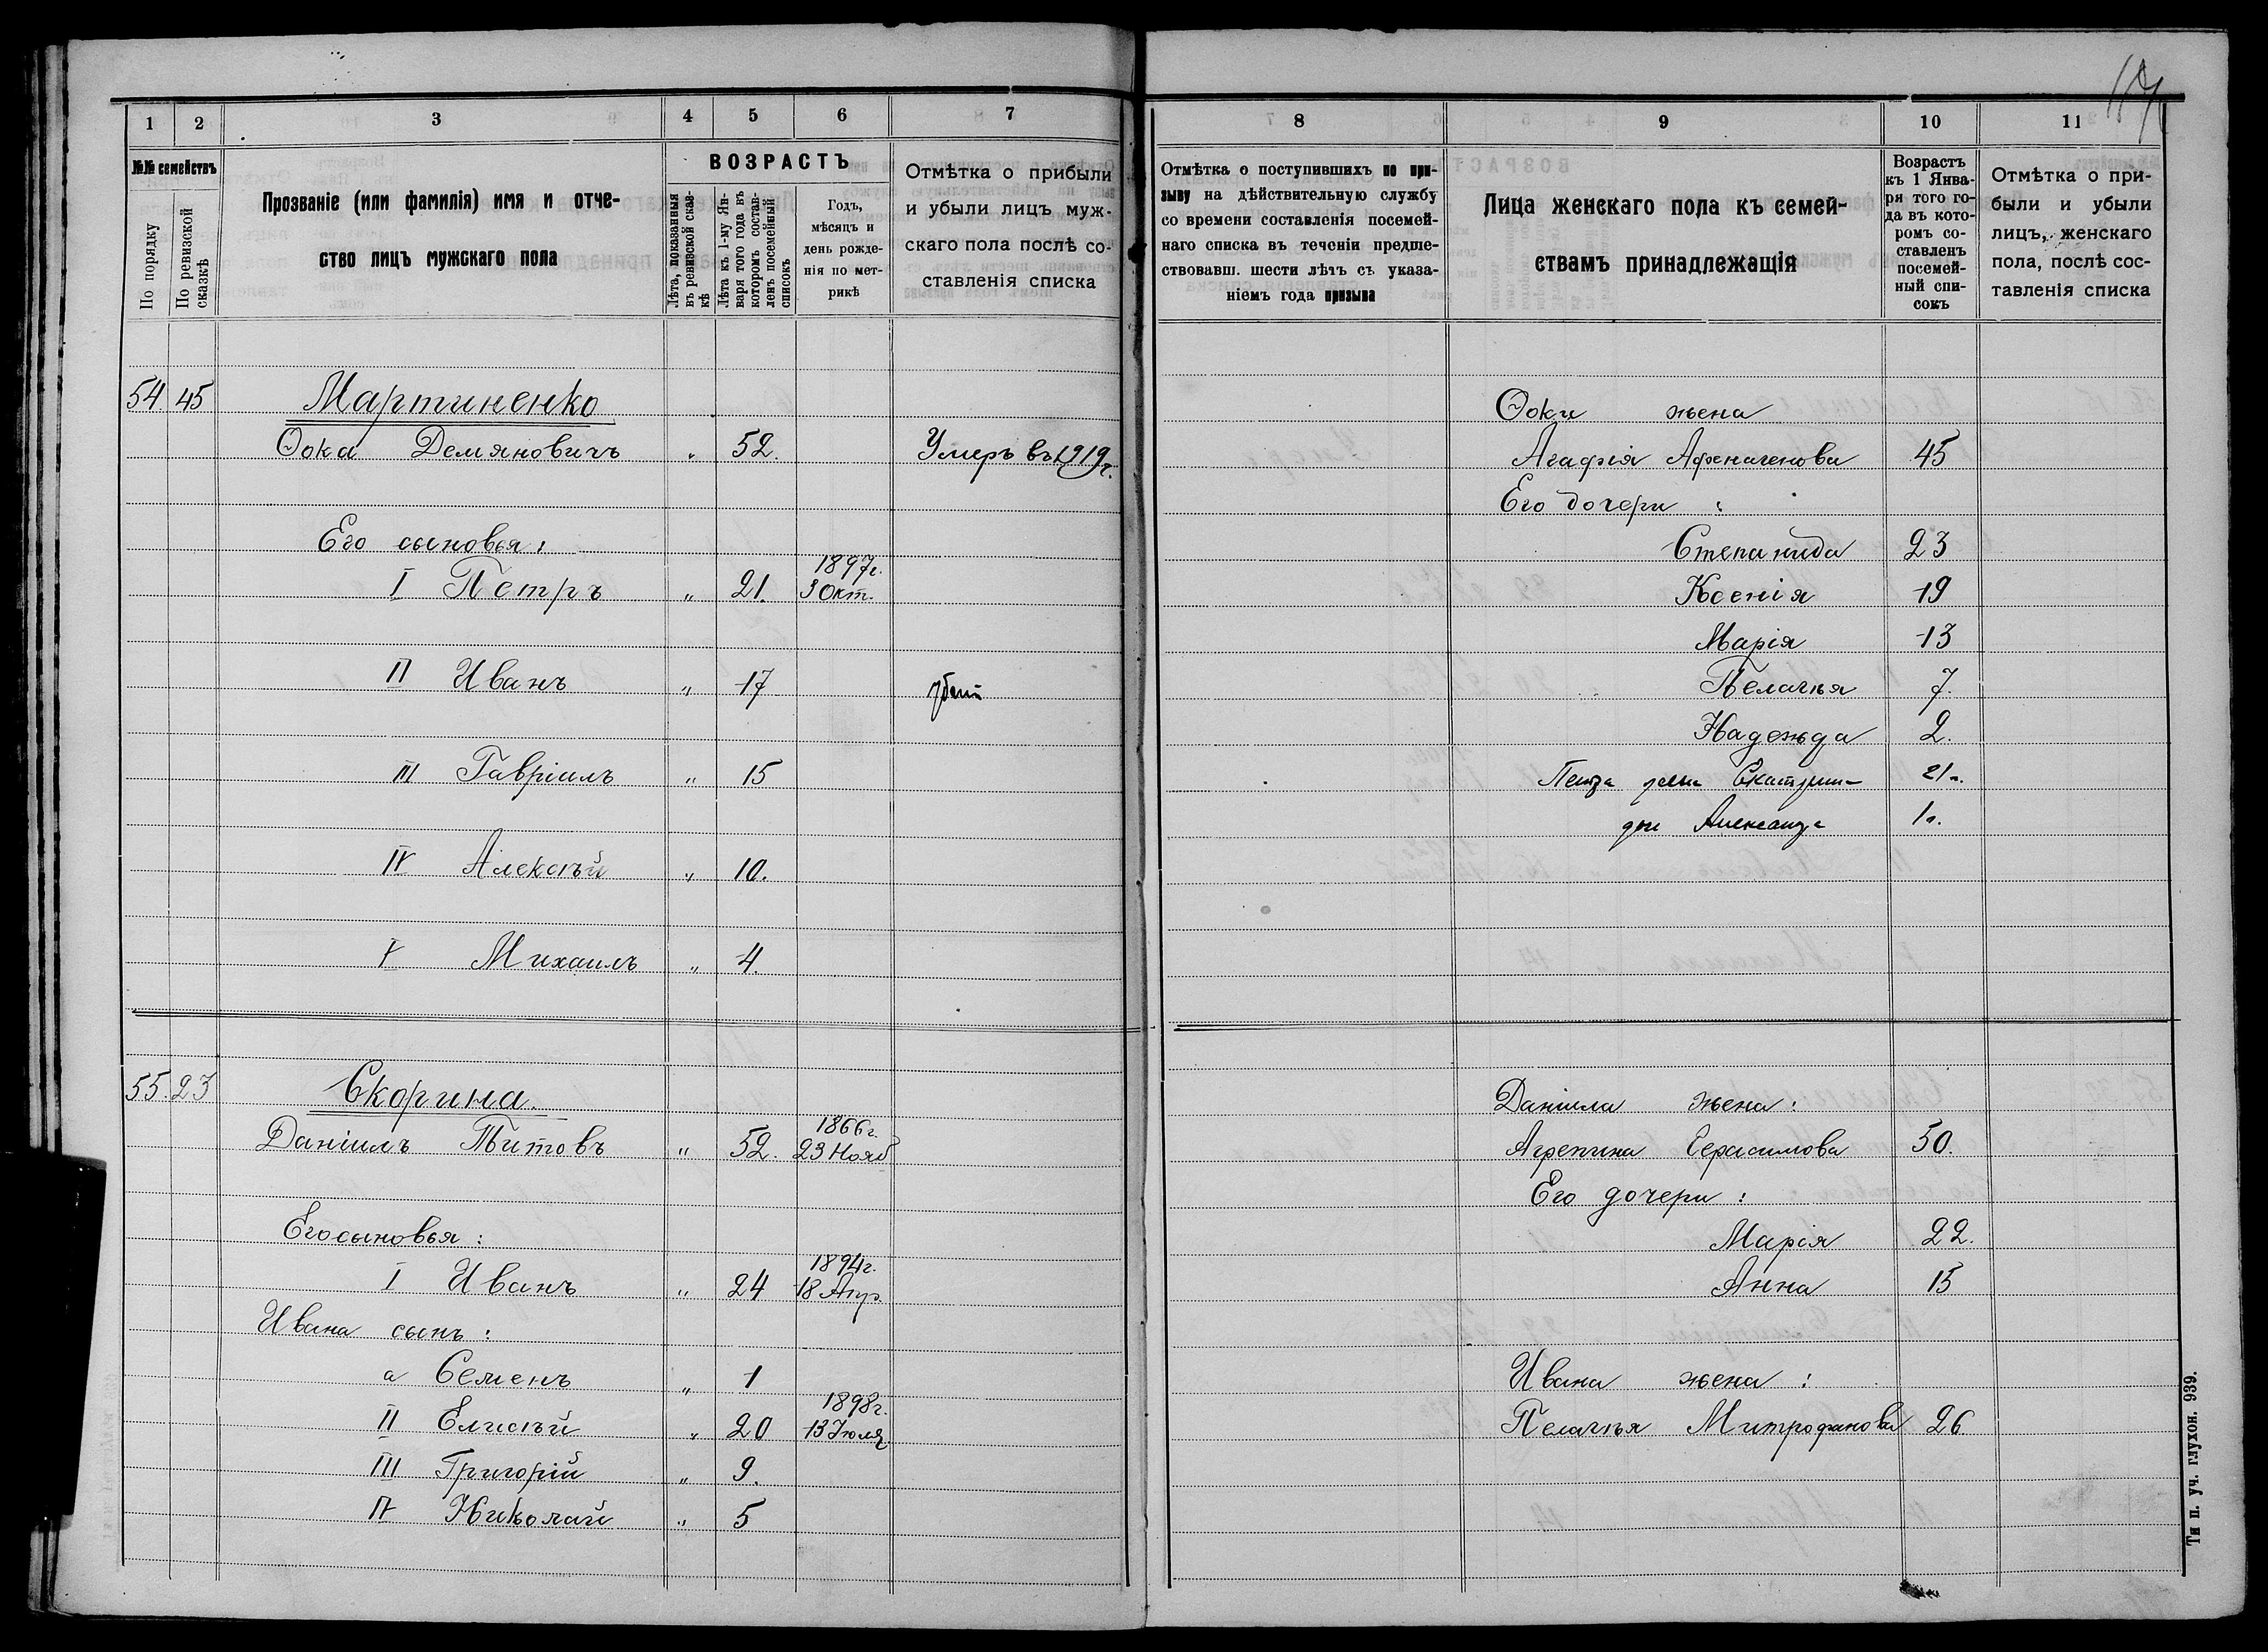 1 2 3 4 5 6 7
№№ семействъ
По порядку
По ревизской сказкѣ
Прозваніе (или фамилія) имя и отче-
ство лицъ мужскаго пола
ВОЗРАСТЪ
Лѣта, показанныя въ ревизской сказ-кѣ
Лѣта къ 1-му Ян-варя того года въ которомъ состав-ленъ посемейный списокъ
Годъ,
мѣсяцъ и
день рожде-
нія по мет-
рикѣ
Отмѣтка о прибыли
и убыли лицъ муж-
скаго пола послѣ со-
ставленія списка
54. 45 Мартиненко
Фока Демяновичъ " 52. Умеръ въ 1919 г.
Его сыновья:
I Петръ " 21. 1897г.
3 Окт.
II Иванъ " 17 убит
III Гавріилъ " 15
IV Алексѣй " 10.
V Михаилъ " 4.
55. 23 Скорина.
Даніилъ Титовъ " 52. 1866г.
23 Нояб
Его сыновья:
I Иванъ " 24 1894г.
18 Апр.
Ивана сынъ:
а Семенъ " 1
II Елисѣй " 20 1898г.
13 Іюля
III Григорій " 9.
IV Николай " 5
8 9 10 11
Отмѣтка о поступившихъ по при-
зыву на дѣйствительную службу
со времени составленія посемей-
наго списка въ теченіи предше-
ствовавш. шести лѣтъ съ указа-
ніемъ года призыва
Лица женскаго пола къ семей-
ствамъ принадлежащія
Возрастъ
къ 1 Янва-
ря того го-
да въ кото-
ромъ со-
ставленъ
посемей-
ный спи-
сокъ
Отмѣтка о при-
были и убыли
лицъ, женскаго
пола, послѣ сос-
тавленія списка
Фоки жена
Агафія Афенагенова 45
Его дочери:
Степанида 23
Ксенія 19
Марія 13
Пелагья 7.
Надежда 2.
Петра жена Екатерина 21 г.
дочь Александра 1 г.
Даніила жена:
Агрепина Герасимова 50.
Его дочери:
Марія 22.
Анна 15
Ивана жена:
Пелагья Митрофанова 26.
Тип. уч. глухон. 939.